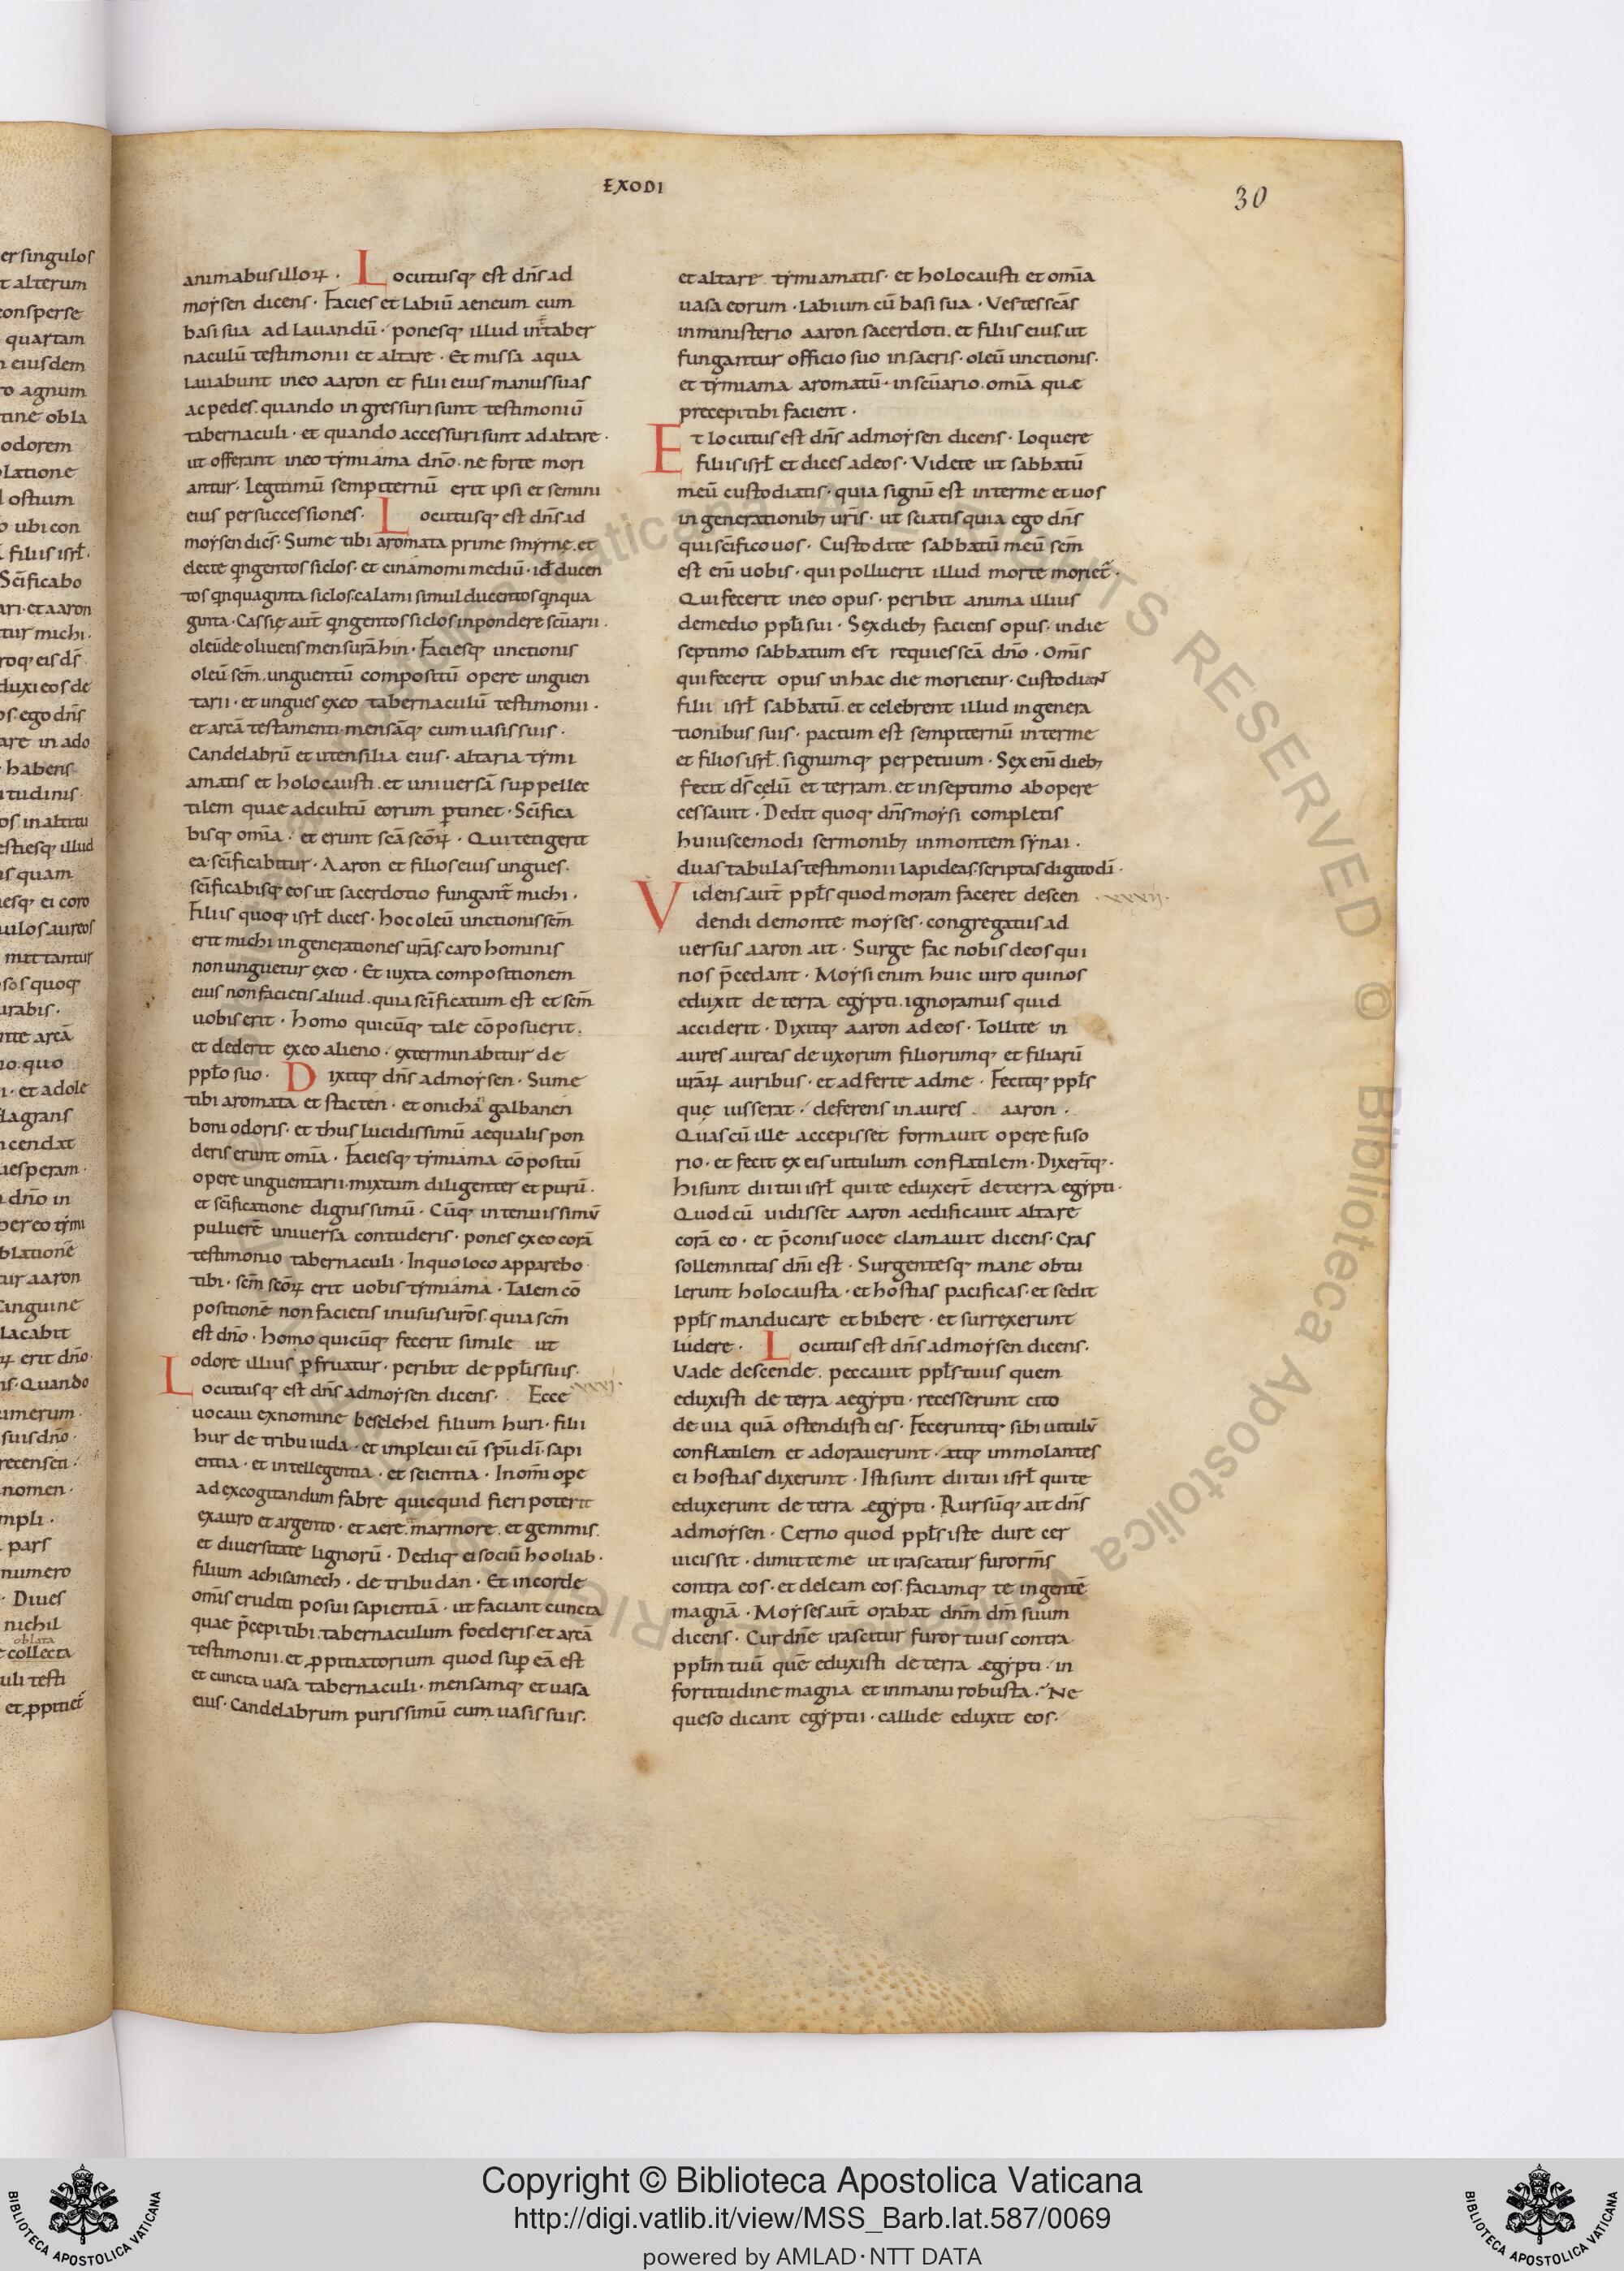 EXODI
30
er singulos
t alterum
consperse
quartam
n eiusdem
ro agnum
tine obla
odorem
latione
l ostium
o ubi con
filiis isrł.
Scīficabo
ari · et aaron
tur michi ·
roq; eis ds̄
duxi eos de
os · ego dn̄s
are in ado
habens
itudinis ·
os in altitu
estiesq; illud
is quam
iesq; ei coro
culos aureos
mittantur
sos quoq;
urabis ·
nte arcā
no quo
i · et adole
flagrans
incendat
uesperam ·
dn̄o in
per eo tẏmi
blationē
tur aaron
sanguine
lacabit
erit dn̄o ·
is · Quando
umerum ·
suis dn̄o ·
recenseti ·
nomen ·
mpli ·
pars
numero
· Diues
nichil
oblata
collecta
uli testi
et ꝓpitiet᷑
animabus illoꝝ · Locutusq; est dn̄s ad
moẏsen dicens · Facies et labiū aeneum cum
basi sua ad lauandū · ponesq; illud int̄ taber
naculū testimonii et altare · Et missa aqua
lauabunt in eo aaron et filii eius manus suas
ac pedes · quando ingressuri sunt testimoniū
tabernaculi · et quando accessuri sunt ad altare ·
ut offerant in eo tẏmiama dn̄o · ne forte mori
antur · Legitimū sempiternū erit ipsi et semini
eius per successiones · Locutusq; est dn̄s ad
moẏsen dicēs · Sume tibi aromata prime smẏrne · et
electe qngentos siclos · et cinamomi mediū · id̄ ducen
tos qnquaginta siclos · calami simul ducentos qnqua
ginta · Cassię aut̄ qngentos siclos in pondere sc̄uarii ·
oleū de oliuetis mensurā hin · Faciesq; unctionis
oleū sc̄m · unguentū compositū opere unguen
tarii · et ungues ex eo tabernaculū testimonii ·
et arcā testamenti · mensāq; cum uasis suis ·
Candelabrū et utensilia eius · altaria tẏmi
amatis et holocausti · et uniuersā suppellec
tilem quae ad cultū eorum ꝑtinet · Sc̄ifica
bisq; om̄ia · et erunt sc̄a sc̄oꝝ · Qui tetigerit
ea · sc̄ificabitur · Aaron et filios eius ungues ·
sc̄ificabisq; eos ut sacerdotio fungant᷑ michi ·
Filiis quoq; isrł dices · hoc oleū unctionis sc̄m
erit michi in generationes ur̄as · caro hominis
non unguetur ex eo · Et iuxta compositionem
eius non facietis aliud · quia sc̄ificatum est et sc̄m
uobis erit · homo quicūq; tale cōposuerit ·
et dederit ex eo alieno · exterminabitur de
ppło suo · Dixitq; dn̄s ad moẏsen · Sume
tibi aromata et stacten · et onicha galbanen
boni odoris · et thus lucidissimū aequalis pon
deris erunt om̄ia · Faciesq; tẏmiama cōpositū
opere unguentarii · mixtum diligenter et purū ·
et sc̄ificatione dignissimū · Cūq; in tenuissimū
puluerē uniuersa contuderis · pones ex eo corā
testimonio tabernaculi · In quo loco apparebo
tibi · sc̄m sc̄oꝝ erit uobis tẏmiama · Talem cō
positionē non facietis in usus ur̄os · quia sc̄m
est dn̄o · homo quicūq; fecerit simile ut
odore illius ꝑfruatur · peribit de ppłis suis ·
Locutusq; est dn̄s ad moẏsen dicens · Ecce xxxi ·
uocaui ex nomine beselehel filium huri · filii
hur de tribu iuda · et impleui eū sp̄u dī · sapi
entia · et intellegentia · et scientia · In om̄i oꝑe
ad excogitandum fabre quicquid fieri poterit
ex auro et argento · et aere · marmore · et gemmis ·
et diuersitate lignorū · Dediq; ei sociū hooliab ·
filium achisamech · de tribu dan · Et in corde
om̄is eruditi posui sapientiā · ut faciant cuncta
quae p̄cepi tibi · tabernaculum foederis · et arcā
testimonii · et ꝓpitiatorium quod suꝑ eā est
et cuncta uasa tabernaculi · mensamq; et uasa
eius · Candelabrum purissimū cum uasis suis ·
et altare tẏmiamatis · et holocausti et om̄ia
uasa eorum · labium cū basi sua · Vestes sc̄as
in ministerio aaron sacerdoti · et filiis eius · ut
fungantur officio suo in sacris · oleū unctionis ·
et tẏmiama aromatū · in sc̄uario · om̄ia quæ
precepi tibi facient ·
Et locutus est dn̄s ad moẏsen dicens · loquere
filiis isrł et dices ad eos · Videte ut sabbatū
meū custodiatis · quia signū est inter me et uos
in generationib; ur̄is · ut sciatis quia ego dn̄s
qui sc̄ifico uos · Custodite sabbatū meū sc̄m
est eni̅ uobis · qui polluerit illud morte moriet᷑ ·
Qui fecerit in eo opus · peribit anima illius
de medio ppłi sui · Sex dieb; facietis opus · in die
septimo sabbatum est requies sc̄a dn̄o · Om̄is
qui fecerit opus in hac die morietur · Custodiant
filii isrł sabbatū · et celebrent illud in genera
tionibus suis · pactum est sempiternū inter me
et filios isrł · signumq; perpetuum · Sex eni̅ dieb;
fecit ds̄ cęlū et terram · et in septimo ab opere
cessauit · Dedit quoq; dn̄s moẏsi completis
huiuscemodi sermonib; in montem sẏnai ·
duas tabulas testimonii lapideas · scriptas digito dī ·
Videns aut̄ ppłs quod moram faceret descen · xxxii ·
dendi de monte moẏses · congregatus ad
uersus aaron ait · Surge fac nobis deos qui
nos p̄cedant · Moẏsi enim huic uiro qui nos
eduxit de terra egẏpti · ignoramus quid
acciderit · Dixitq; aaron ad eos · Tollite in
aures aureas de uxorum filiorumq; et filiarū
ur̄aꝝ auribus · et adferte ad me · Fecitq; ppłs
quę iusserat · deferens inaures aaron ·
Quas cū ille accepisset formauit opere fuso
rio · et fecit ex eis uitulum conflatilem · Dixert̄q; ·
hi sunt dii tui isrł qui te eduxert̄ de terra egẏpti ·
Quod cū uidisset aaron aedificauit altare
corā eo · et p̄conis uoce clamauit dicens · Cras
sollemnitas dn̄i est · Surgentesq; mane obtu
lerunt holocausta · et hostias pacificas · et sedit
ppłs manducare et bibere · et surrexerunt
ludere · Locutus est dn̄s ad moẏsen dicens ·
Vade descende · peccauit ppłs tuus quem
eduxisti de terra aegẏpti · recesserunt cito
de uia quā ostendisti eis · Feceruntq; sibi uitulū
conflatilem et adorauerunt · atq; immolantes
ei hostias dixerunt · Isti sunt dii tui isrł qui te
eduxerunt de terra ægẏpti · Rursūq; ait dn̄s
ad moẏsen · Cerno quod ppłs iste dure cer
uicis sit · dimitte me ut irascatur furor ms̄
contra eos · et deleam eos · faciamq; te in gentē
magnā · Moẏses aut̄ orabat dn̄m dm̄ suum
dicens · Cur dn̄e irascitur furor tuus contra
ppłm tuū quē eduxisti de terra ægẏpti · in
fortitudine magna et in manu robusta · Ne
queso dicant egẏptii · callide eduxit eos ·
© Biblioteca Apostolica Vaticana ALL RIGHTS RESERVED
Copyright © Biblioteca Apostolica Vaticana
http://digi.vatlib.it/view/MSS_Barb.lat.587/0069
powered by AMLAD·NTT DATA
BIBLIOTECA APOSTOLICA VATICANA
BIBLIOTECA APOSTOLICA VATICANA